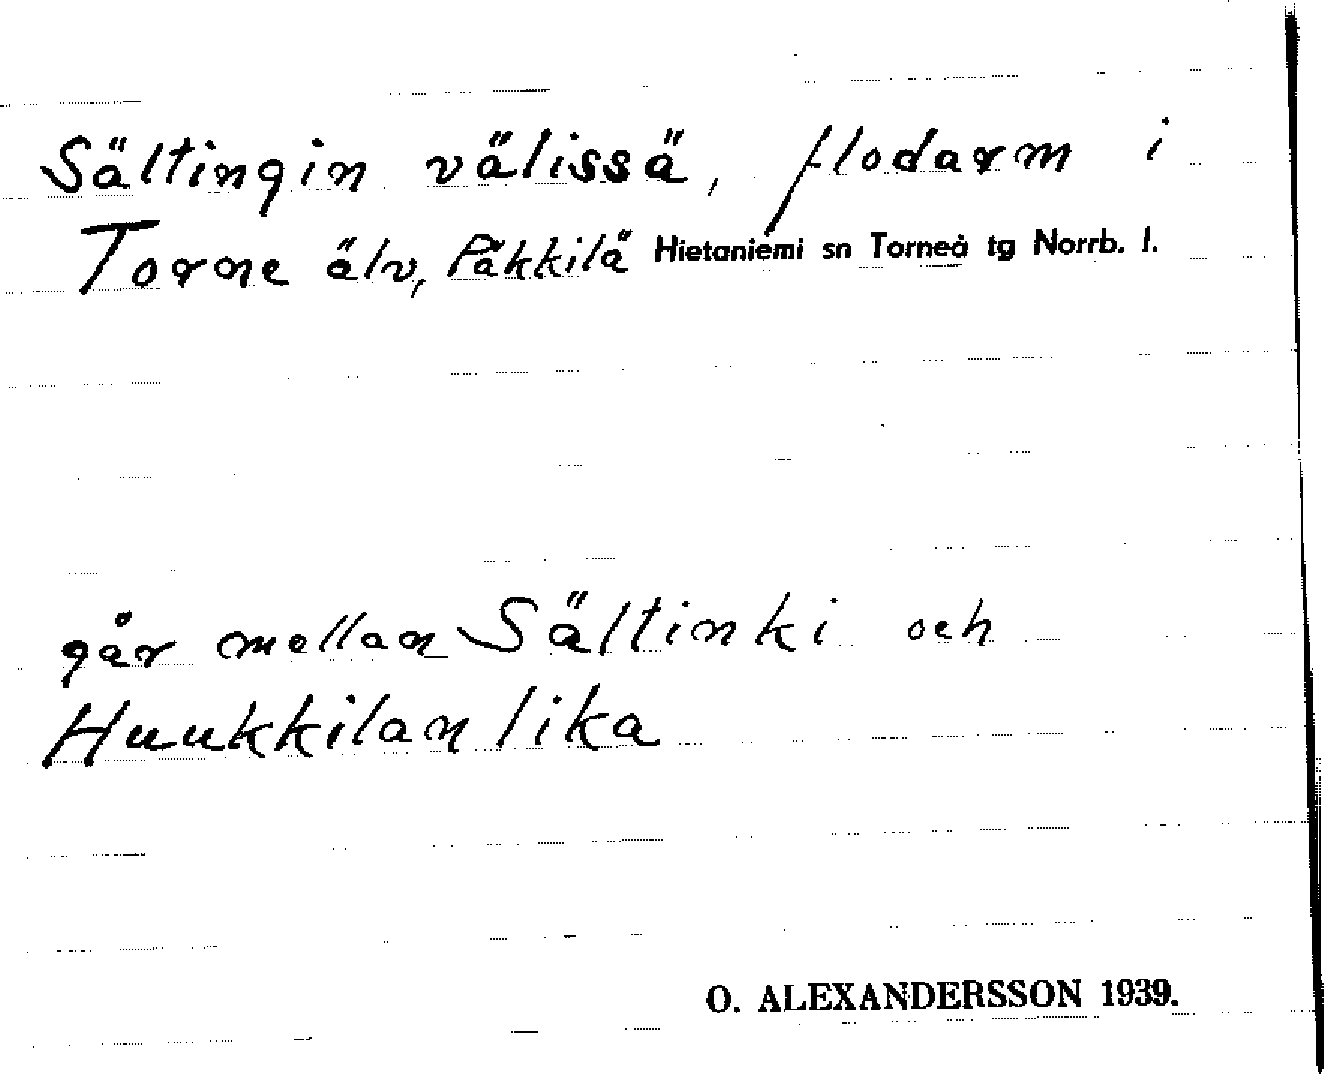 Sältingin välissä, flodarm i
Torne älv, Päkkilä Hietaniemi sn Torneå tg Norrb. l.
går mellan Sältinki och
Huukkilan lika
O. ALEXANDERSSON 1939.